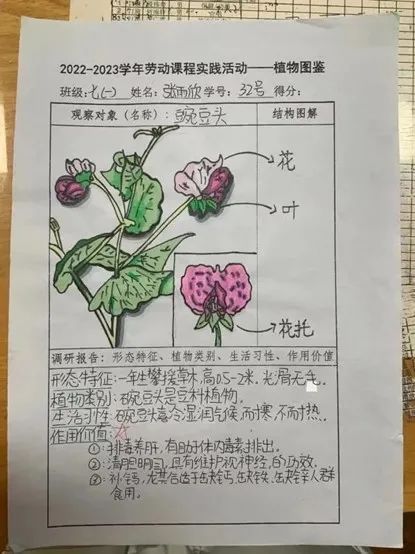 2022-2023学年劳动课程实践活动——植物图鉴
班级:七(一) 姓名:张雨欣 学号:32号 得分:
观察对象(名称):豌豆头 结构图解
花
叶
花托
调研报告:形态特征、植物类别、生活习性、作用价值
形态特征:一年生攀援草木,高0.5-2米。光滑无毛。
植物类别:豌豆头是豆科植物。
生活习性:豌豆头喜冷湿润气候,耐寒,不耐热。
作用价值:
①:排毒养肝,有助于体内毒素排出。
②:清胆明目,具有维护视神经的功效。
③:补钙,尤其合适于缺钙、缺铁、缺锌人群
食用。